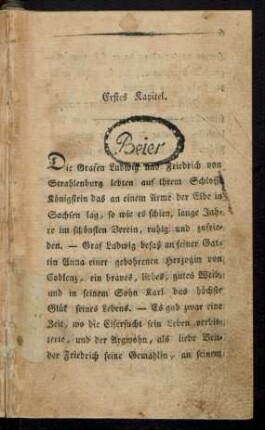 Erstes Kapitel.
Beier
Die Grafen Ludwig und Friedrich von
Strahlenburg lebten auf ihrem Schloße
Königstein das an einem Arme der Elbe in
Sachsen lag, so wie es schien, lange Jah-
re im schönsten Verein, ruhig und zufrie-
den. — Graf Ludwig besaß an seiner Gat-
tin Anna einer gebohrenen Herzogin von
Coblenz, ein braves, liebes, gutes Weib,
und in seinem Sohn Karl das höchste
Glük seines Lebens. — Es gab zwar eine
Zeit, wo die Eifersucht sein Leben verbit-
terte, und der Argwohn, als liebe Bru-
der Friedrich seine Gemahlin, an seinem